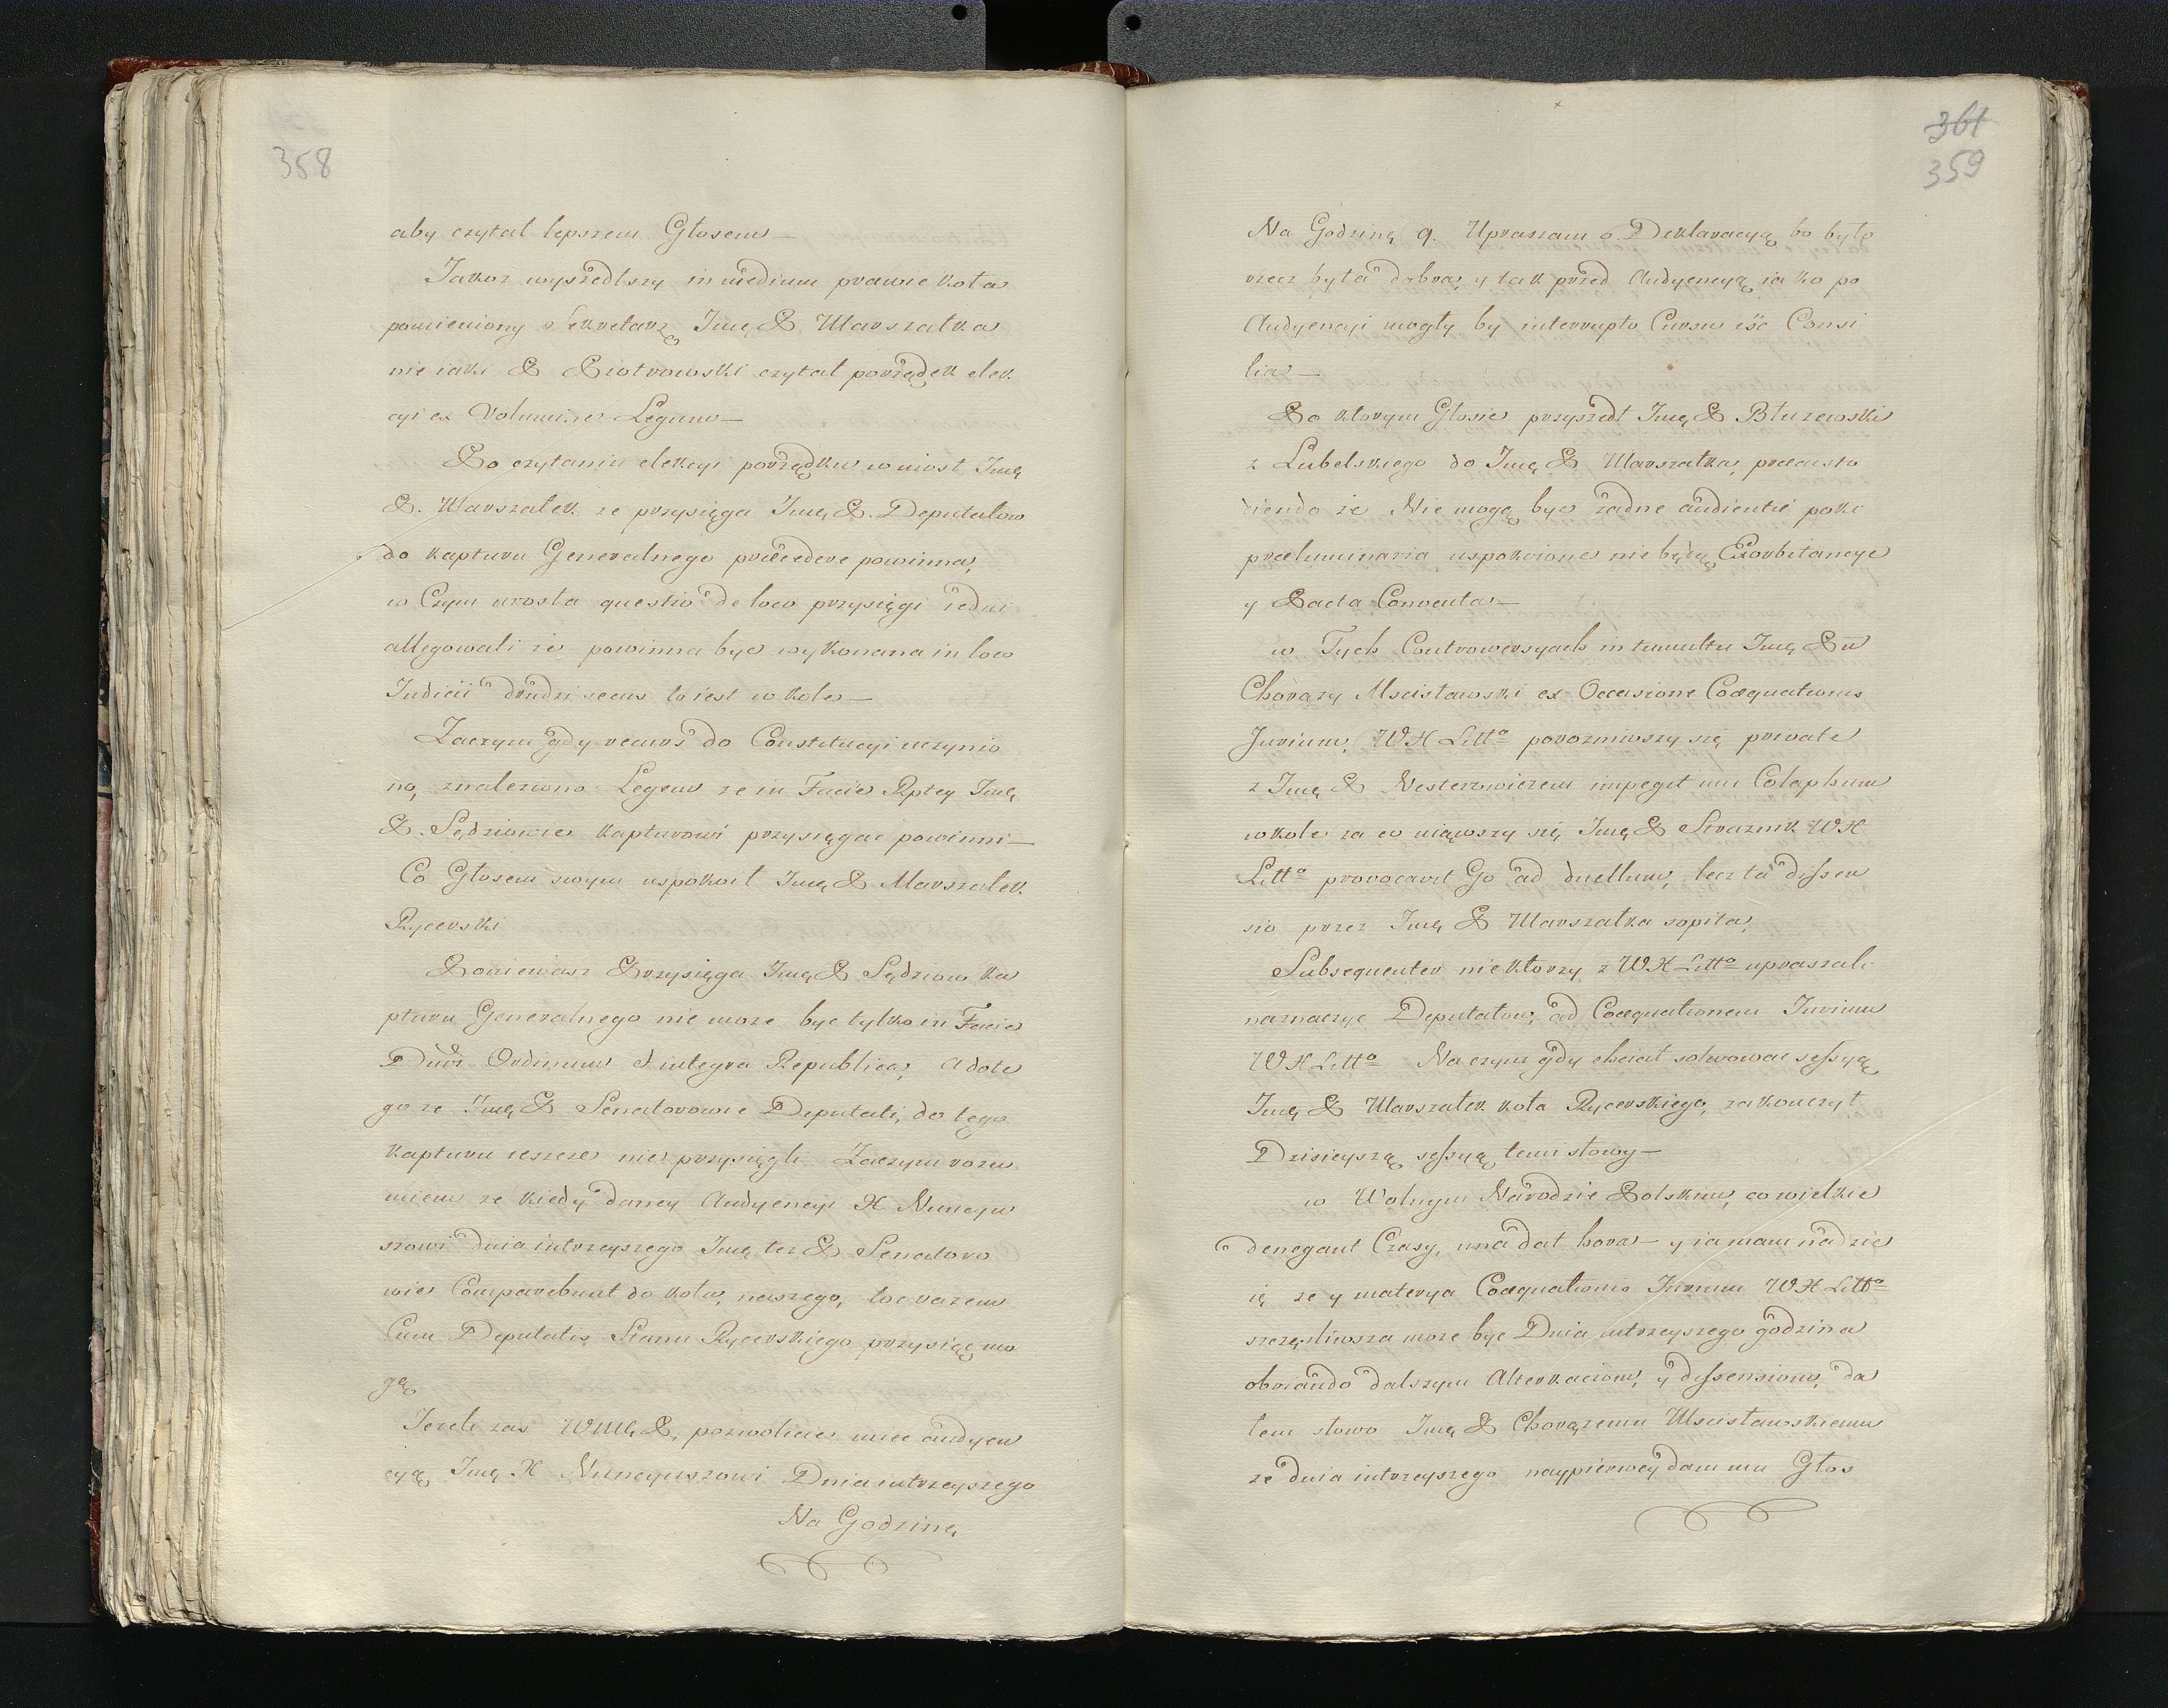 358
aby czytał lepszem Głosem—
Jakoz wyszedłszy in medium prawie koła
pomieniony Sekretarz Jmę P. Marszałka
nie iaki P. Piotrowski czytał porządek elek
cyi ex Volumine Legum—
Po czytaniu elekcyi porządku wniosł Jmę
P. Marszałek ze przysięga Jmę P. Deputatow
do kapturu Generalnego præcedere powinna,
w Czym urosła questio de loco przysięgi iedni
allegowali ze powinna byc wykonana in loco
Judicii drudzi secus to iest w kole—
Zaczym gdy recurs do Constitucyi uczynio
no, znaleziono Legem ze in Facie Rptey Jmę
P. Sędziowie kapturowi przysięgac powinni—
Co Głosem swym uspokoił Jmę P. Marszałek
Rycerski
Poniewasz Przysięga Jmę P. Sędziow ka
pturu Generalnego nie moze byc tylko in Facie
Ordinum et integra Republica, a do te
go ze Jmę P. Senatorowie Deputati, do tego
kapturu ieszcze nie przysięgli Zaczym rozu
miem ze kiedy daney Audyencyi X Nuncyu
szowi dnia iutrzeyszego Jmę tez P. Senatoro
wie Comparebunt do koła, naszego, toc razem
Cum Deputatis Stanu Rycerskiego przysiądz mo
gą
Jezeli zas WMę P. pozwolicie miec audyen
cyą Jmę X Nuncyuszowi Dnia iutrzeyszego
Na Godzinę
361
359
Na Godzinę 9. Upraszam o Deklaracyą bo było
rzecz była dobra, y tak przed Audyencyą iako po
Audyencyi mogły by interrupto Cursu iść Consi
lia—
Po ktorym Głosie przyszedł Jmę P. Błuzewski
z Lubelskiego do Jmę P. Marszałka, præcusto
diendo ze Nie mogą byc zadne audientie poki
præliminaria uspokoione nie będą Exorbitancye
y Pacta Conventa—
w Tych Controwersyach in tumultu Jmę Pn
Chorązy Mscisławski ex Occasione Coæquationis
Jurium, WX Litto porozniwszy się privatè
z Jmę P. Nesterowiczem impegit mu Colaphum
w kole za co uiąwszy się Jmę P. Straznik WX
Litto provocavit Go ad duellum, lecz ta dissen
sio przez Jmę P. Marszałka sopita,
Subsequenter niektorzy z WX Litto upraszali
naznaczyc Deputatow, ad Coæquationem Jurium
WX Litto Na czym gdy chciał solwowac sessyą
Jmę P. Marszałek koła Rycerskiego, zakonczył
Dzisieyszą sessyą temi słowy—
w Wolnym Narodzie Polskim, co wielkie
denegant Czasy, una dat hora— y ia mam nadzie
ię ze y materya Coæquationis Jurium WX Litto
szczęśliwsza moze byc Dnia iutrzeyszego godzina
obviando dalszym Alterkaciom, y dissensiom, da
łem słowo Jmę P. Chorązemu Mscisławskiemu
ze dnia iutrzeyszego naypierwey dam mu Głos